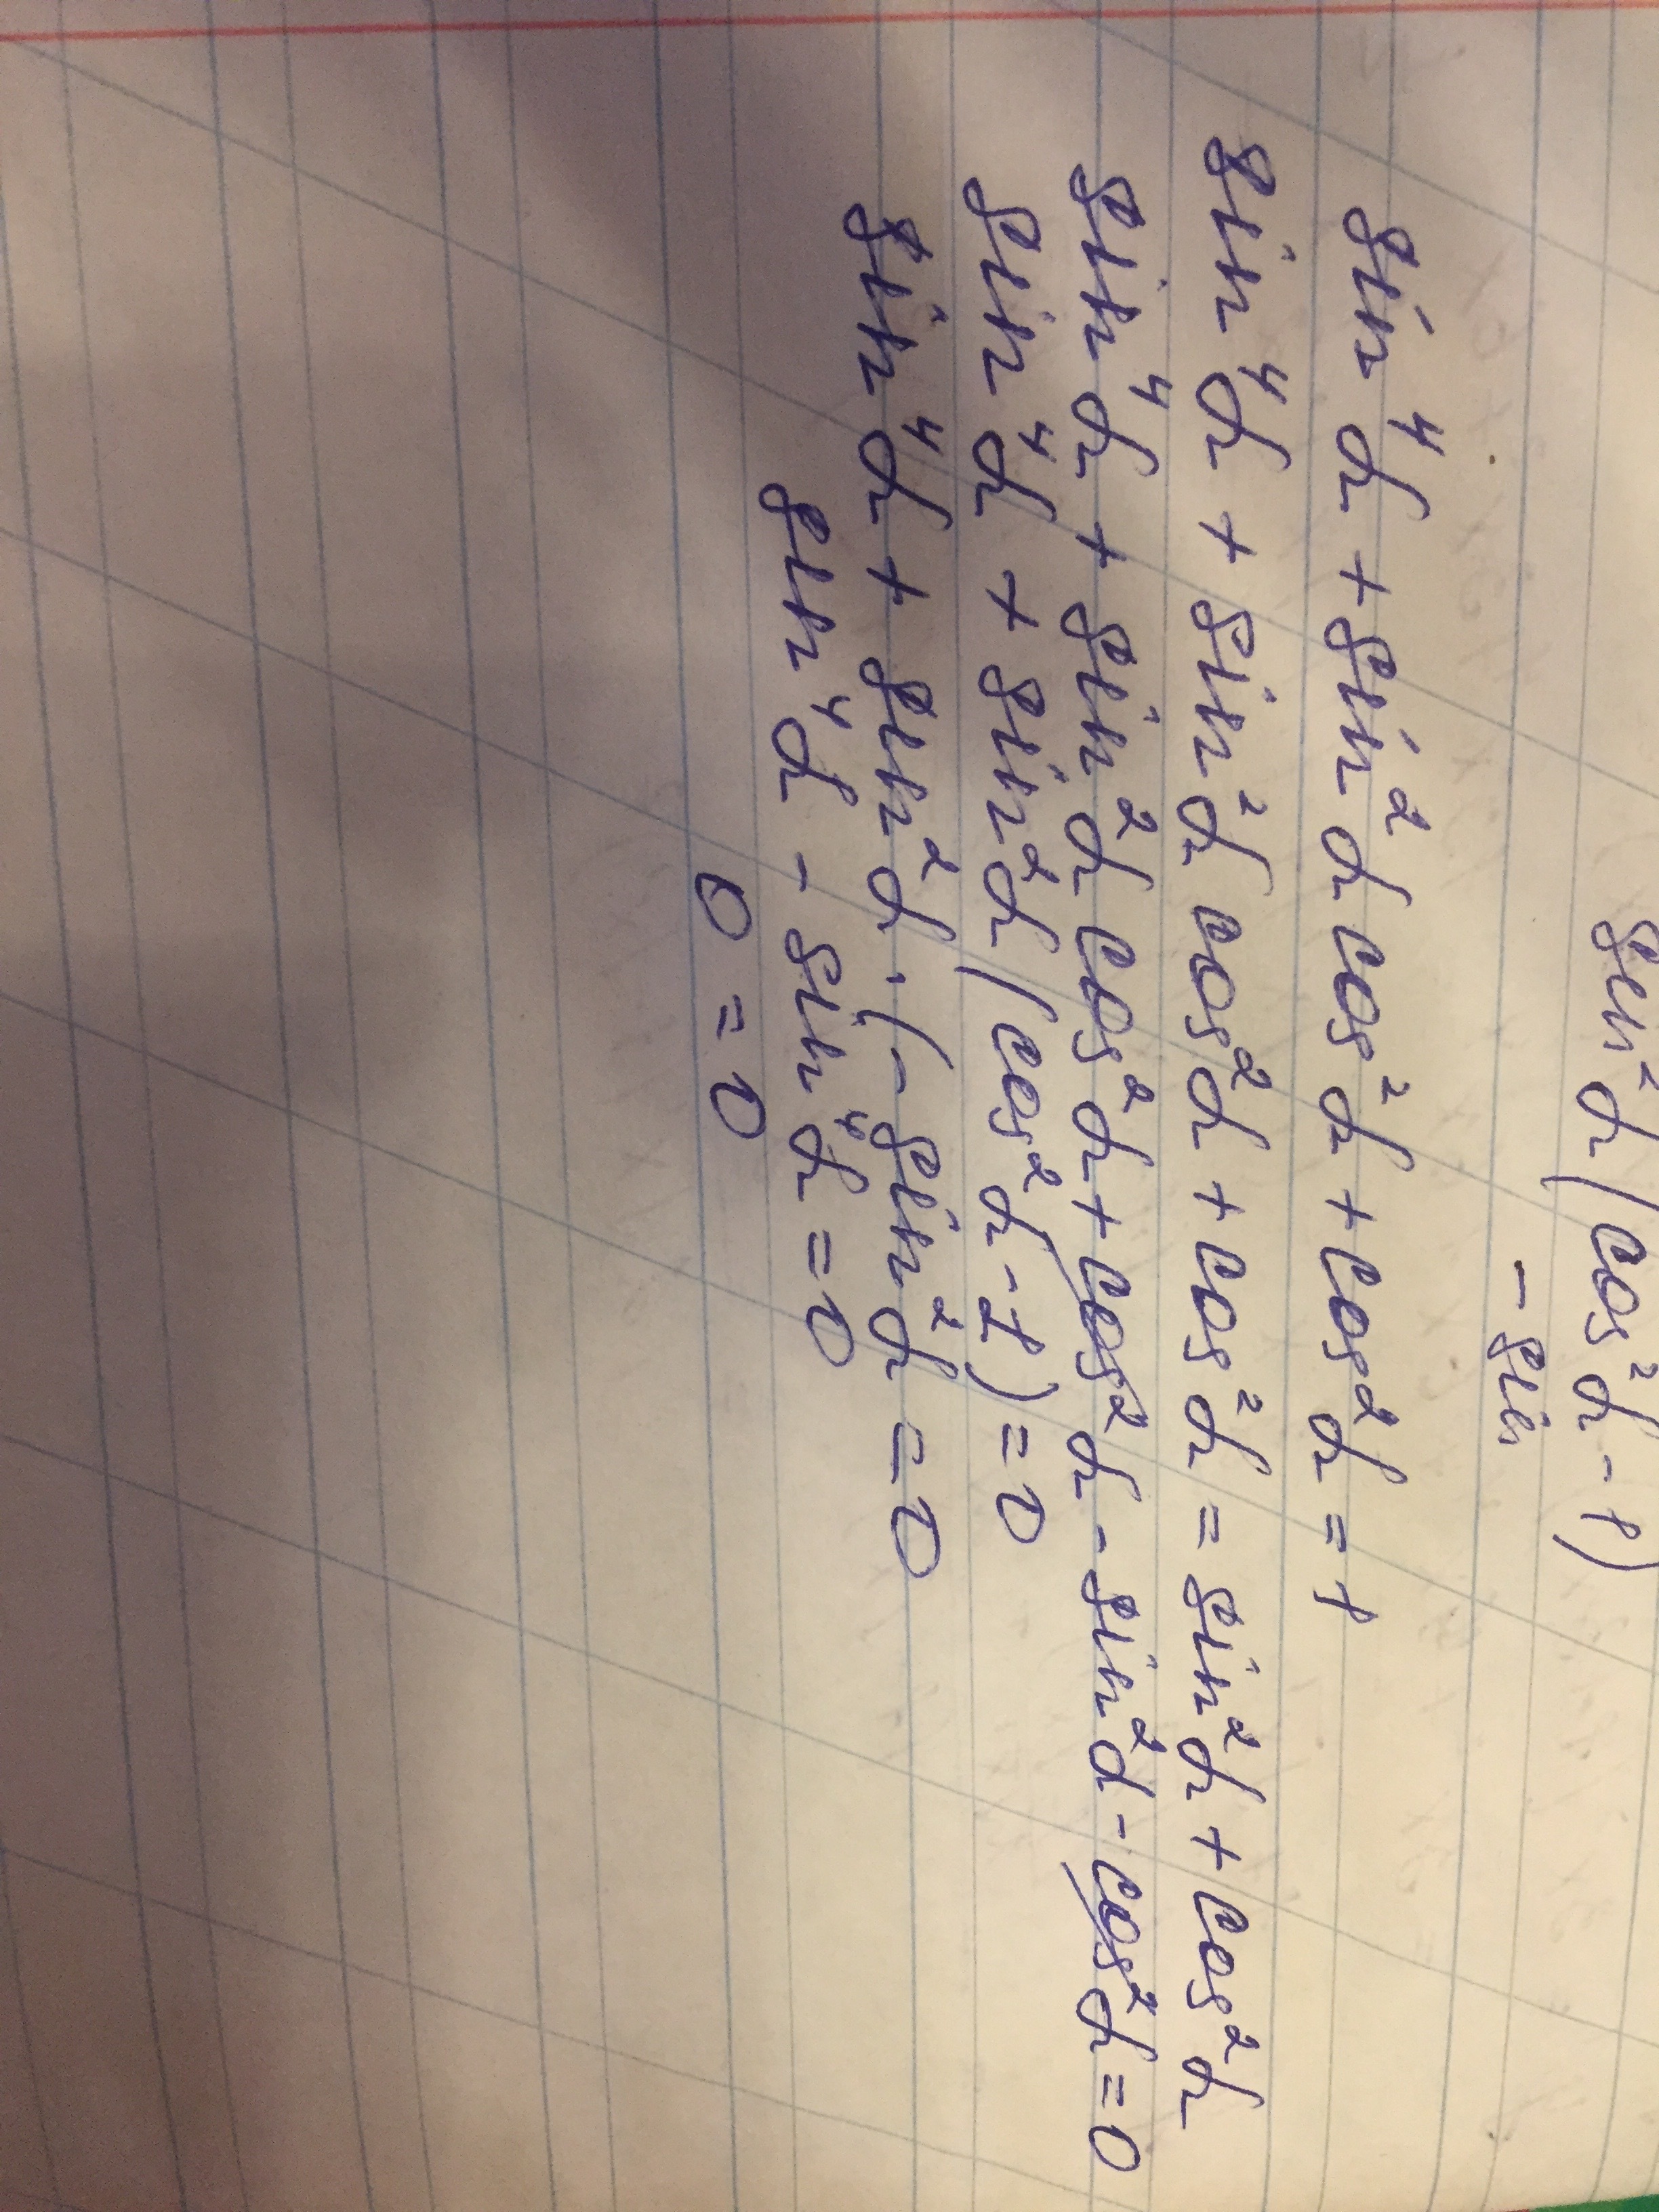 sin²α(cos²α-1)
- sin
sin⁴α + sin²α cos²α + cos²α = 1
sin⁴α + sin²α cos²α + cos²α = sin²α + cos²α
sin⁴α + sin²α cos²α + cos²α - sin²α - cos²α = 0
sin⁴α + sin²α (cos²α - 1) = 0
sin⁴α + sin²α · (- sin²α = 0
sin⁴α - sin⁴α = 0
0 = 0